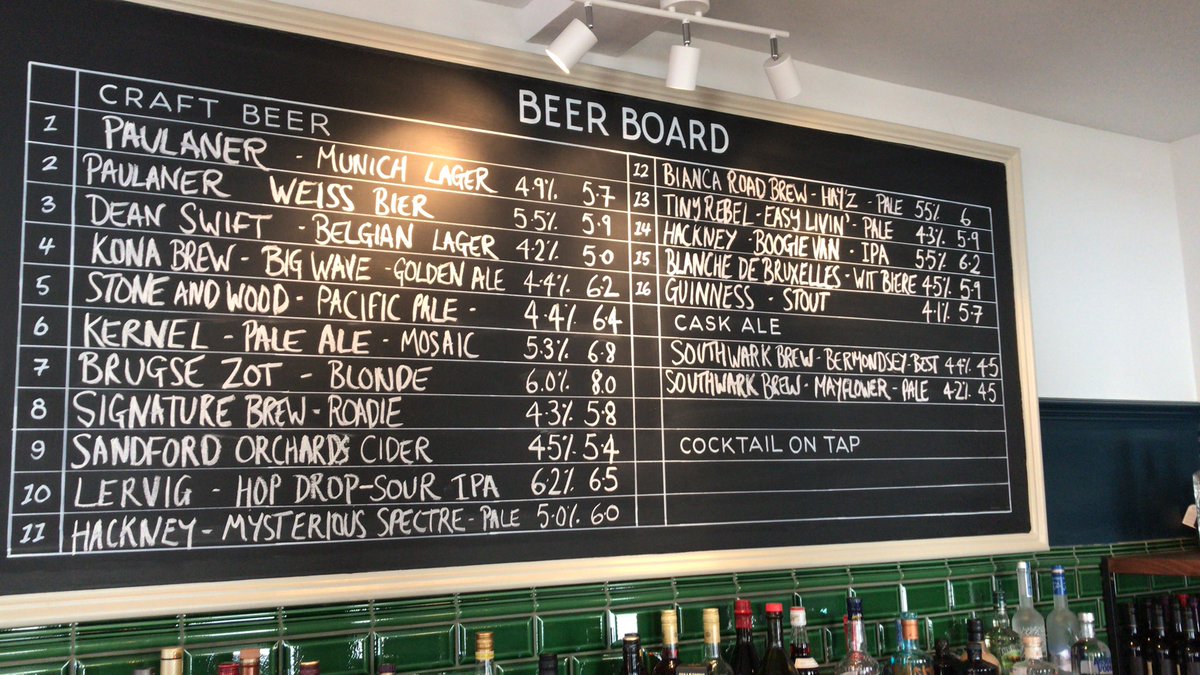 BEER BOARD
CRAFT BEER
1 PAULANER - MUNICH LAGER 4.9% 5.7
2 PAULANER WEISS BIER 5.5% 5.9
3 DEAN SWIFT - BELGIAN LAGER 4.2% 5.0
4 KONA BREW - BIG WAVE - GOLDEN ALE 4.4% 6.2
5 STONE AND WOOD - PACIFIC PALE - 4.4% 6.4
6 KERNEL - PALE ALE - MOSAIC 5.3% 6.8
7 BRUGSE ZOT - BLONDE 6.0% 8.0
8 SIGNATURE BREW - ROADIE 4.3% 5.8
9 SANDFORD ORCHARDS CIDER 4.5% 5.4
10 LERVIG - HOP DROP - SOUR IPA 6.2% 6.5
11 HACKNEY - MYSTERIOUS SPECTRE - PALE 5.0% 6.0
12 BIANCA ROAD BREW - HAY'Z - PALE 5.5% 6
13 TINY REBEL - EASY LIVIN' - PALE 4.3% 5.9
14 HACKNEY - BOOGIE VAN - IPA 5.5% 6.2
15 BLANCHE DE BRUXELLES - WIT BIERE 4.5% 5.9
16 GUINNESS - STOUT 4.1% 5.7
CASK ALE
SOUTHWARK BREW - BERMONDSEY BEST 4.4% 4.5
SOUTHWARK BREW - MAYFLOWER - PALE 4.2% 4.5
COCKTAIL ON TAP